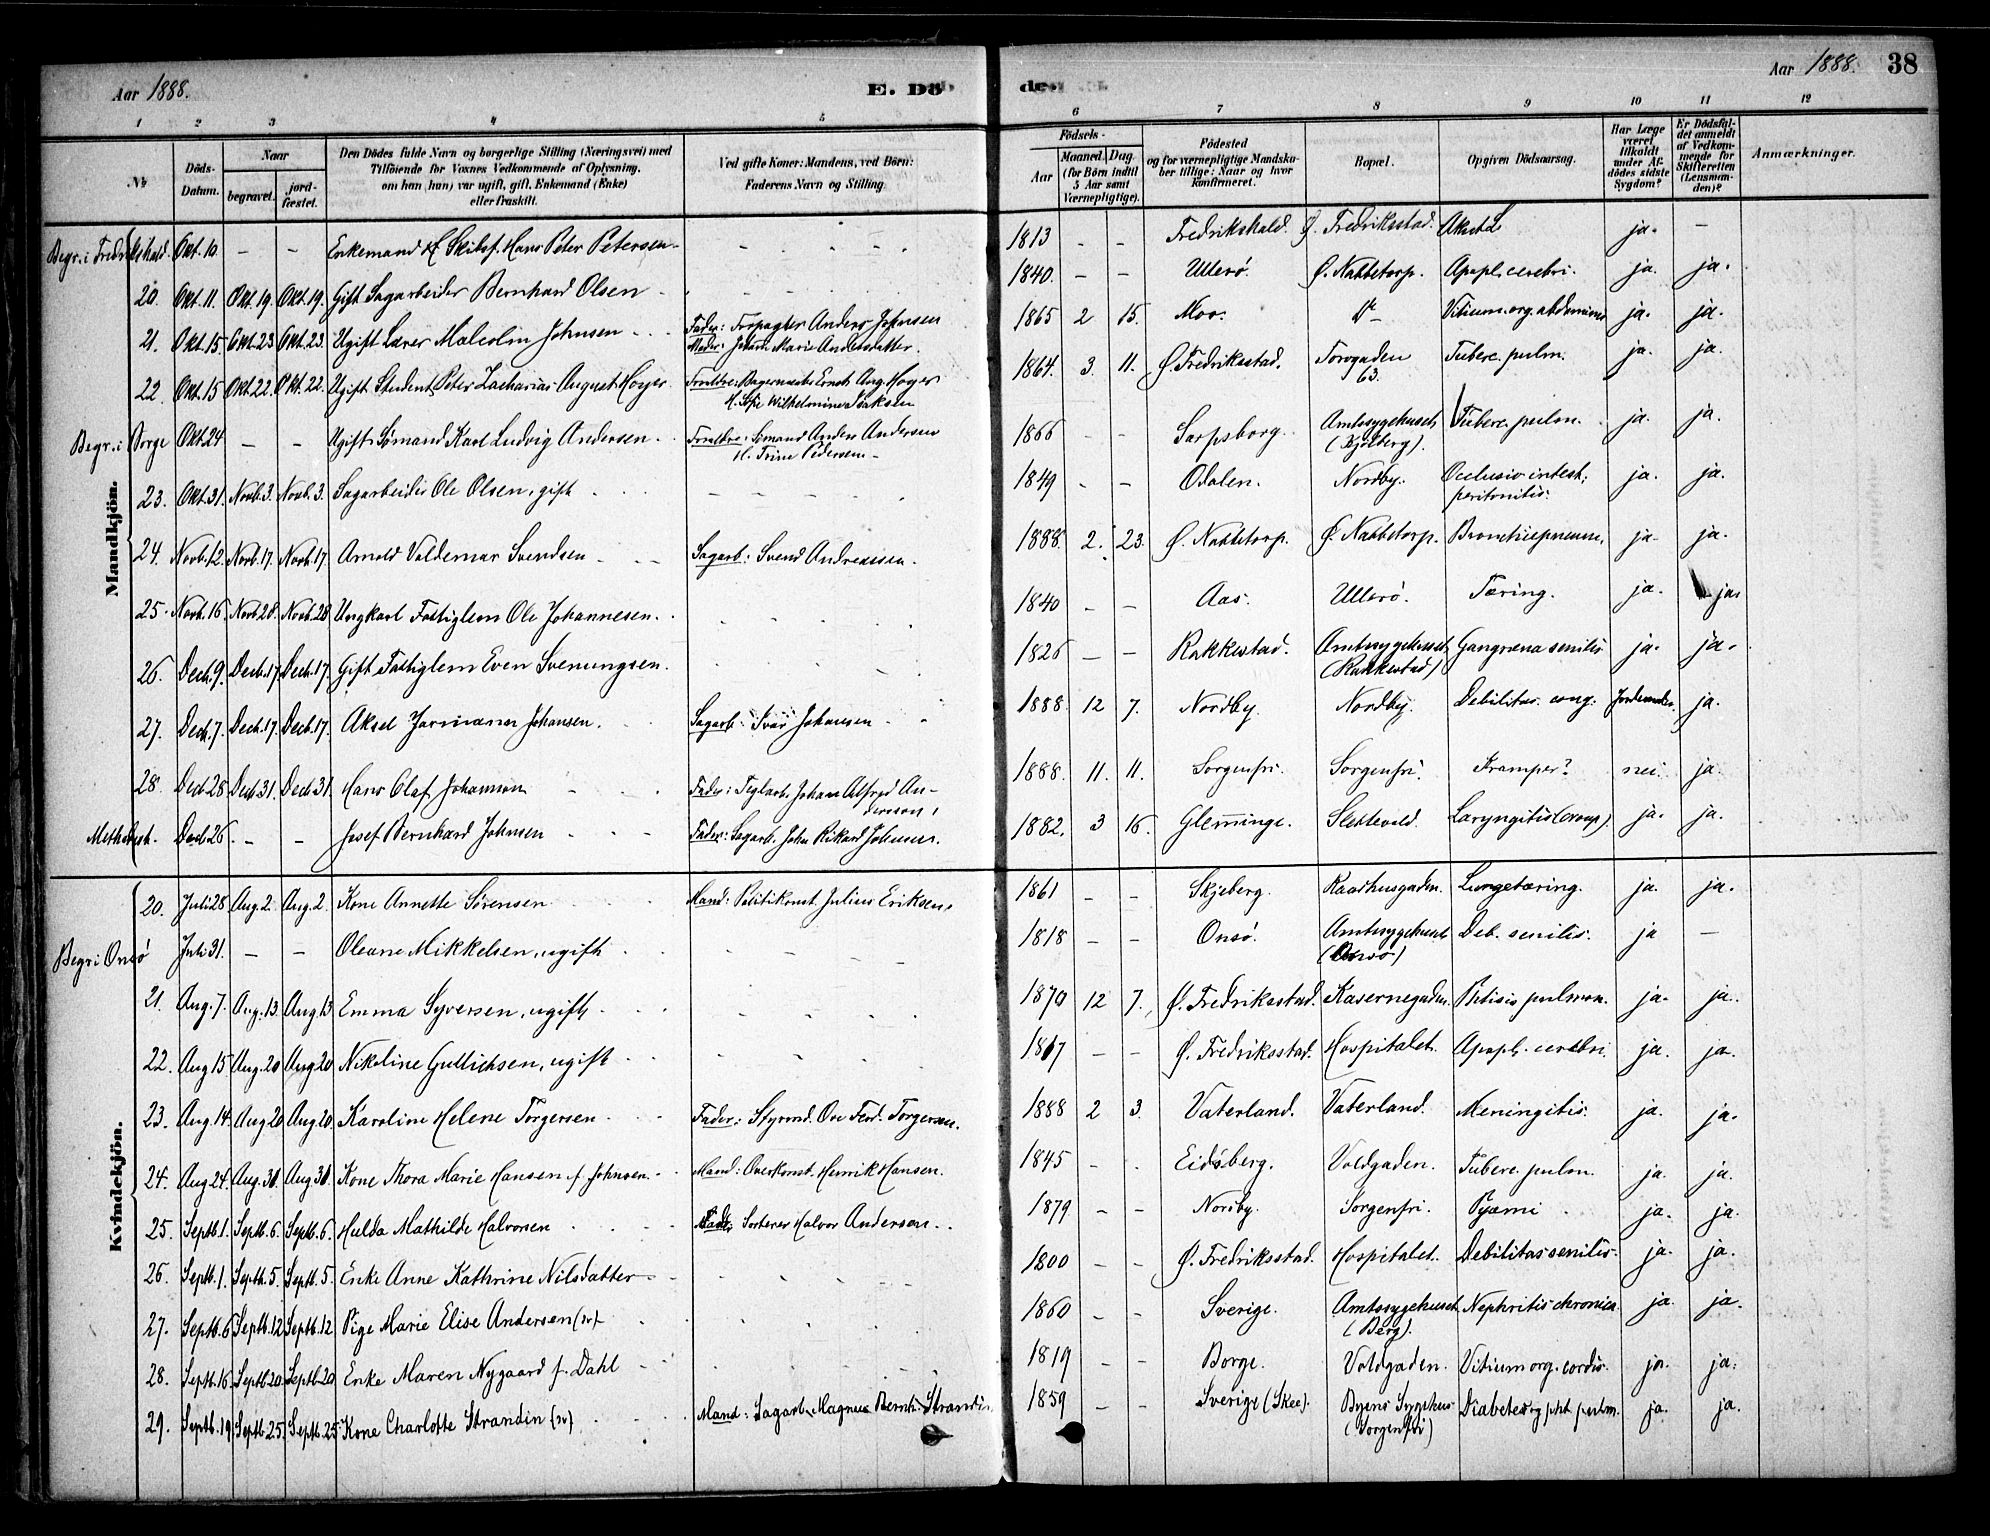 Aar 1888.
E. Dö
1 2 3 4 5
No
Döds-
Datum.
Naar
begravet.
jord-
fæstet.
Den Dödes fulde Navn og borgerlige Stilling (Næringsvei) med
Tilföiende for Voxnes Vedkommende af Oplysning,
om han (hun) var ugift, gift, Enkemand (Enke)
eller fraskilt.
Ved gifte Koner: Mandens, ved Börn:
Faderens Navn og Stilling
Mandkjön.
Begr. i Fredrikshald. Okt. 10. – – Enkemand Skibsf. Hans Peter Petersen
20. Okt. 11. Okt. 19. Okt. 19. Gift Sagarbeider Bernhard Olsen
21. Okt. 15. Okt. 23 Okt. 23. Ugift Lærer Malcolm Johnsen Fader: Forpagter Anders Johnsen
Moder: Marie Andersdatter.
22. Okt. 15 Okt. 22. Okt. 22. Ugift Student Peter Zacharias August Høyer Forældre: Bagermester Ernst Aug. Høyer
H. Sofie Wilhelmine Isaksen
Begr. i Borge Okt. 24 – – Ugift Sømand Karl Ludvig Andersen Forældre: Sømand Anders Andersen
H. Trine Pedersen
23. Okt. 31. Novb. 3. Novb. 3. Sagarbeider Ole Olsen, gift
24. Novb. 12. Novb. 17. Novb. 17. Arnold Valdemar Svendsen Sagarb: Svend Andreassen.
25. Novb. 16. Novb. 28. Novb. 28 Ungkarl Fattiglem Ole Johannesen.
26. Decb. 9. Decb. 17. Decb. 17. Gift Fattiglem Even Svenungsen.
27. Decb. 7. Decb. 17. Decb. 17. Aksel Johansen. Sagarb: Ivar Johansen
28. Decb 28 Decb 31. Decb 31 Hans Olaf Johannson Fader: Teglarb. Johan Alfred An-
dersson,
Methodist. Decb 26. – – Josef Bernhard Johnsen Fader: Sagarb. John Rikard Johnsen.
Kvindekjön.
20. Juli 28 Aug. 2. Aug. 2. Kone Annette Sørensen Mand: Politikonst. Julius Eriksen.
Begr i Onsø Juli 31. – – Oleane Mikkelsen, ugift
21. Aug. 7. Aug. 13. Aug. 13 Emma Syversen, ugift
22. Aug 15 Aug. 20 Aug 20 Nikoline Gullichsen, ugift
23. Aug. 14. Aug 20 Aug 20. Karoline Helene Torgersen Fader: Styrmd. Ove Ferd. Torgersen.
24. Aug 24. Aug. 31. Aug 31. Kone Thora Marie Hansen f. Johnsen. Mand: Overkonst. Henrik Hansen.
25. Septb. 1. Septb. 6. Septb. 6. Hulda Mathilde Halvorsen Fader: Sorterer Halvor Andersen.
26. Septb. 1. Septb. 5. Septb. 5. Enke Anne Kathrine Nilsdatter
27. Septb. 6. Septb. 12 Septb. 12. Pige Marie Elise Andersen (sv)
28. Septb. 16. Septb 20. Septb 20 Enke Maren Nygaard f. Dahl
29. Septb. 19. Septb. 25. Septb. 25 Kone Charlotte Strandin (sv) Mand: Sagarb. Magnus Bernh. Strandin
Aar 1888. 38
6 7 8 9 10 11 12
Födsels-
Aar
Maaned. Dag.
(for Börn indtil
5 Aar samt
Værnepligtige).
Födested
og for værnepligtige Mandska-
ber tillige: Naar og hvor
konfirmeret.
Bopæl.
Opgiven Dödsaarsag.
Har Læge
været
tilkaldt
under Af-
dödes sidste
Sygdom?
Er Dödsfal-
det anmeldt
af Vedkom-
mende for
Skifteretten
(Lensman-
den)?
Anmærkninger.
1813 – – Fredrikshald. Ø. Fredriksstad. ja. –
1840. – – Ullerø. Ø. Nabbetorp. Apopl. cerebri. ja. ja.
1865 2 15. Moss. Do Vitium. org. abdominis ja. ja.
1864. 3. 11. Ø. Fredriksstad. Torvgaden Tuberc. pulm. ja. ja.
63.
1866 – – Sarpsborg. Amtssygehuset Tuberc. pulm. ja. ja.
(Kjølberg).
1849 – – Odalen. Nordby. Occlusio intest. ja. ja.
peritonitis.
1888. 2. 23. Ø. Nabbetorp. Ø. Nabbetorp. Bronchiepneum. ja. ja.
1840 – – Aas. Ullerø. Tæring. ja. ja.
1826 – – Rakkestad. Amtssygehuset Gangræna senilis ja. ja.
(Rakkestad)
1888. 12 7. Nordby. Nordby. Debilitas cong. Jordemoder. ja.
1888. 11. 11. Sorgenfri. Sorgenfri. Kramper? nei. ja.
1882. 3 16. Glemminge. Slettevold. Laryngitis (croup). ja. ja.
1861 – – Skjeberg. Raadhusgaden. Lungetæring. ja. ja.
1818 – – Onsø. Amtssygehuset Deb. senilis. ja –
(Onsø)
1870 12 7. Ø. Fredriksstad. Kasernegaden. Phtisis pulmon. ja. ja.
1817 – – Ø. Fredriksstad. Hospitalet. Apopl. cerebri. ja. ja.
1888 2 3. Vaterland. Vaterland. Meningitis. ja. ja.
1845 – – Eidsberg. Voldgaden. Tuberc. pulm. ja. ja.
1879 – – Nordby. Sorgenfri. Pyæmi ja. ja.
1800 – – Ø. Fredriksstad. Hospitalet. Debilitas senilis. ja. ja.
1860 – – Sverige. Amtssygehuset Nephritis chronica. ja. ja.
(Berg).
1819 – – Borge. Voldgaden. Vitium org. cordis. ja. ja.
1859 – – Sverige (Skee). Byens Sygehus Diabetes og pht. pulm. ja. ja.
(Sorgenfri)